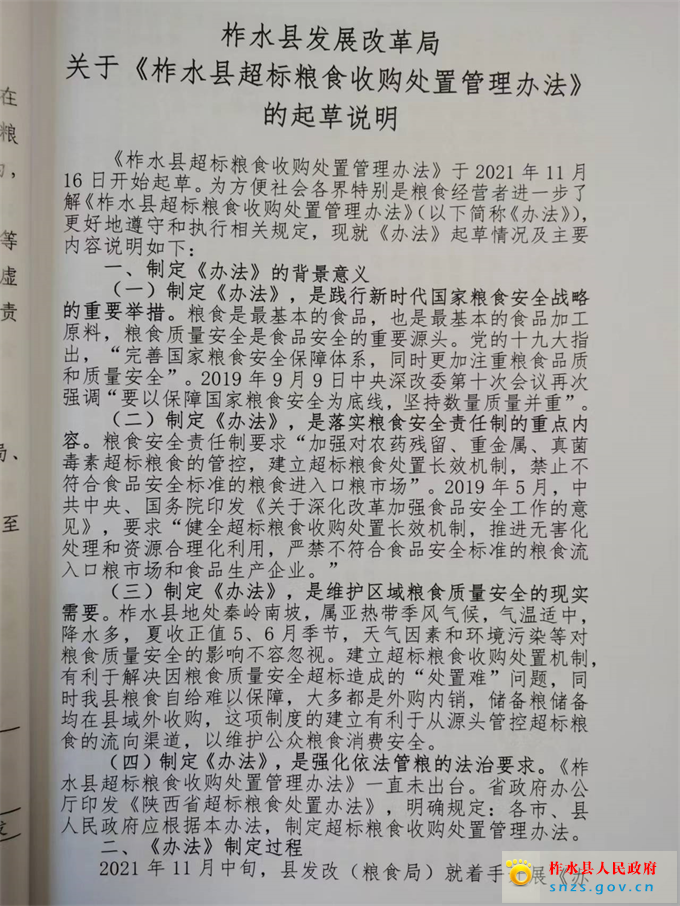 柞水县发展改革局
关于《柞水县超标粮食收购处置管理办法》
的起草说明
《柞水县超标粮食收购处置管理办法》于 2021 年 11 月
16 日开始起草。为方便社会各界特别是粮食经营者进一步了
解《柞水县超标粮食收购处置管理办法》（以下简称《办法》），
更好地遵守和执行相关规定，现就《办法》起草情况及主要
内容说明如下：
一、制定《办法》的背景意义
（一）制定《办法》，是践行新时代国家粮食安全战略
的重要举措。粮食是最基本的食品，也是最基本的食品加工
原料，粮食质量安全是食品安全的重要源头。党的十九大指
出，“完善国家粮食安全保障体系，同时更加注重粮食品质
和质量安全”。2019 年 9 月 9 日中央深改委第十次会议再次
强调“要以保障国家粮食安全为底线，坚持数量质量并重”。
（二）制定《办法》，是落实粮食安全责任制的重点内
容。粮食安全责任制要求“加强对农药残留、重金属、真菌
毒素超标粮食的管控，建立超标粮食处置长效机制，禁止不
符合食品安全标准的粮食进入口粮市场”。2019 年 5 月，中
共中央、国务院印发《关于深化改革加强食品安全工作的意
见》，要求“健全超标粮食收购处置长效机制，推进无害化
处理和资源合理化利用，严禁不符合食品安全标准的粮食流
入口粮市场和食品生产企业。”
（三）制定《办法》，是维护区域粮食质量安全的现实
需要。柞水县地处秦岭南坡，属亚热带季风气候，气温适中，
降水多，夏收正值 5、6 月季节，天气因素和环境污染等对
粮食质量安全的影响不容忽视。建立超标粮食收购处置机制，
有利于解决因粮食质量安全超标造成的“处置难”问题，同
时我县粮食自给难以保障，大多都是外购内销，储备粮储备
均在县域外收购，这项制度的建立有利于从源头管控超标粮
食的流向渠道，以维护公众粮食消费安全。
（四）制定《办法》，是强化依法管粮的法治要求。《柞
水县超标粮食收购处置管理办法》一直未出台。省政府办公
厅印发《陕西省超标粮食处置办法》，明确规定：各市、县
人民政府应根据本办法，制定超标粮食收购处置管理办法。
二、《办法》制定过程
2021 年 11 月中旬，县发改（粮食局）就着手开展《办
在
粮
等
虚
责
局、
至
柞水县人民政府
snzs.gov.cn